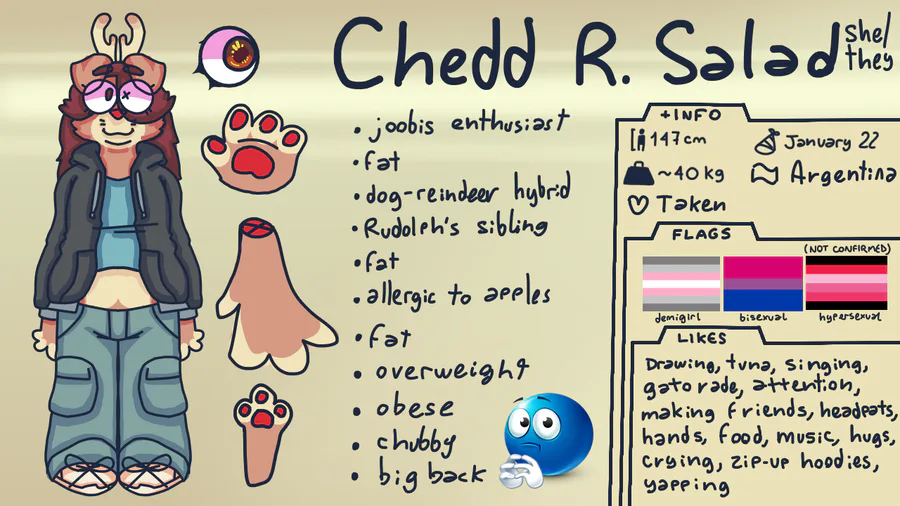 Chedd R. Salad
she/
they
• joobis enthusiast
• fat
• dog-reindeer hybrid
• Rudolph's sibling
• fat
• allergic to apples
• fat
• overweight
• obese
• chubby
• big back
+INFO
147cm
January 22
~40 kg
Argentina
Taken
FLAGS
(NOT CONFIRMED)
demigirl
bisexual
hypersexual
LIKES
Drawing, tuna, singing,
gatorade, attention,
making friends, headpats,
hands, food, music, hugs,
crying, zip-up hoodies,
yapping